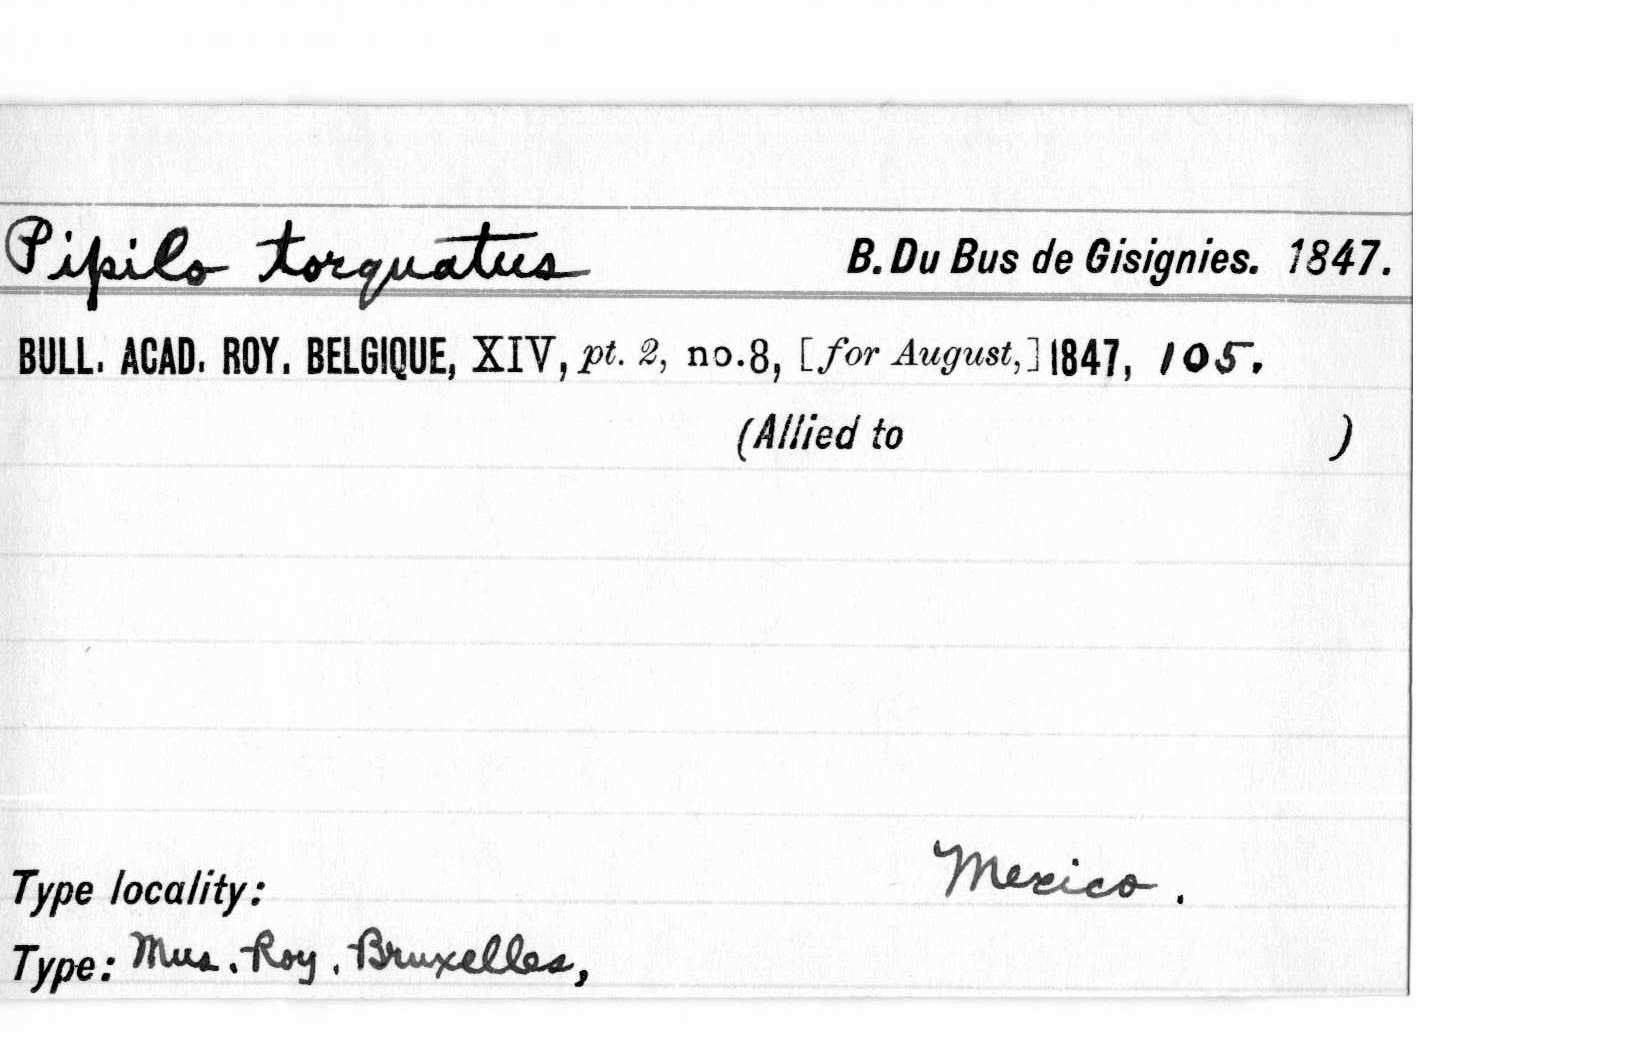 Pipilo torquatus B. Du Bus de Gisignies. 1847.
BULL. ACAD. ROY. BELGIQUE, XIV, pt. 2, no.8, [for August,] 1847, 105.
(Allied to )
Type locality: Mexico.
Type: Mus. Roy. Bruxelles,